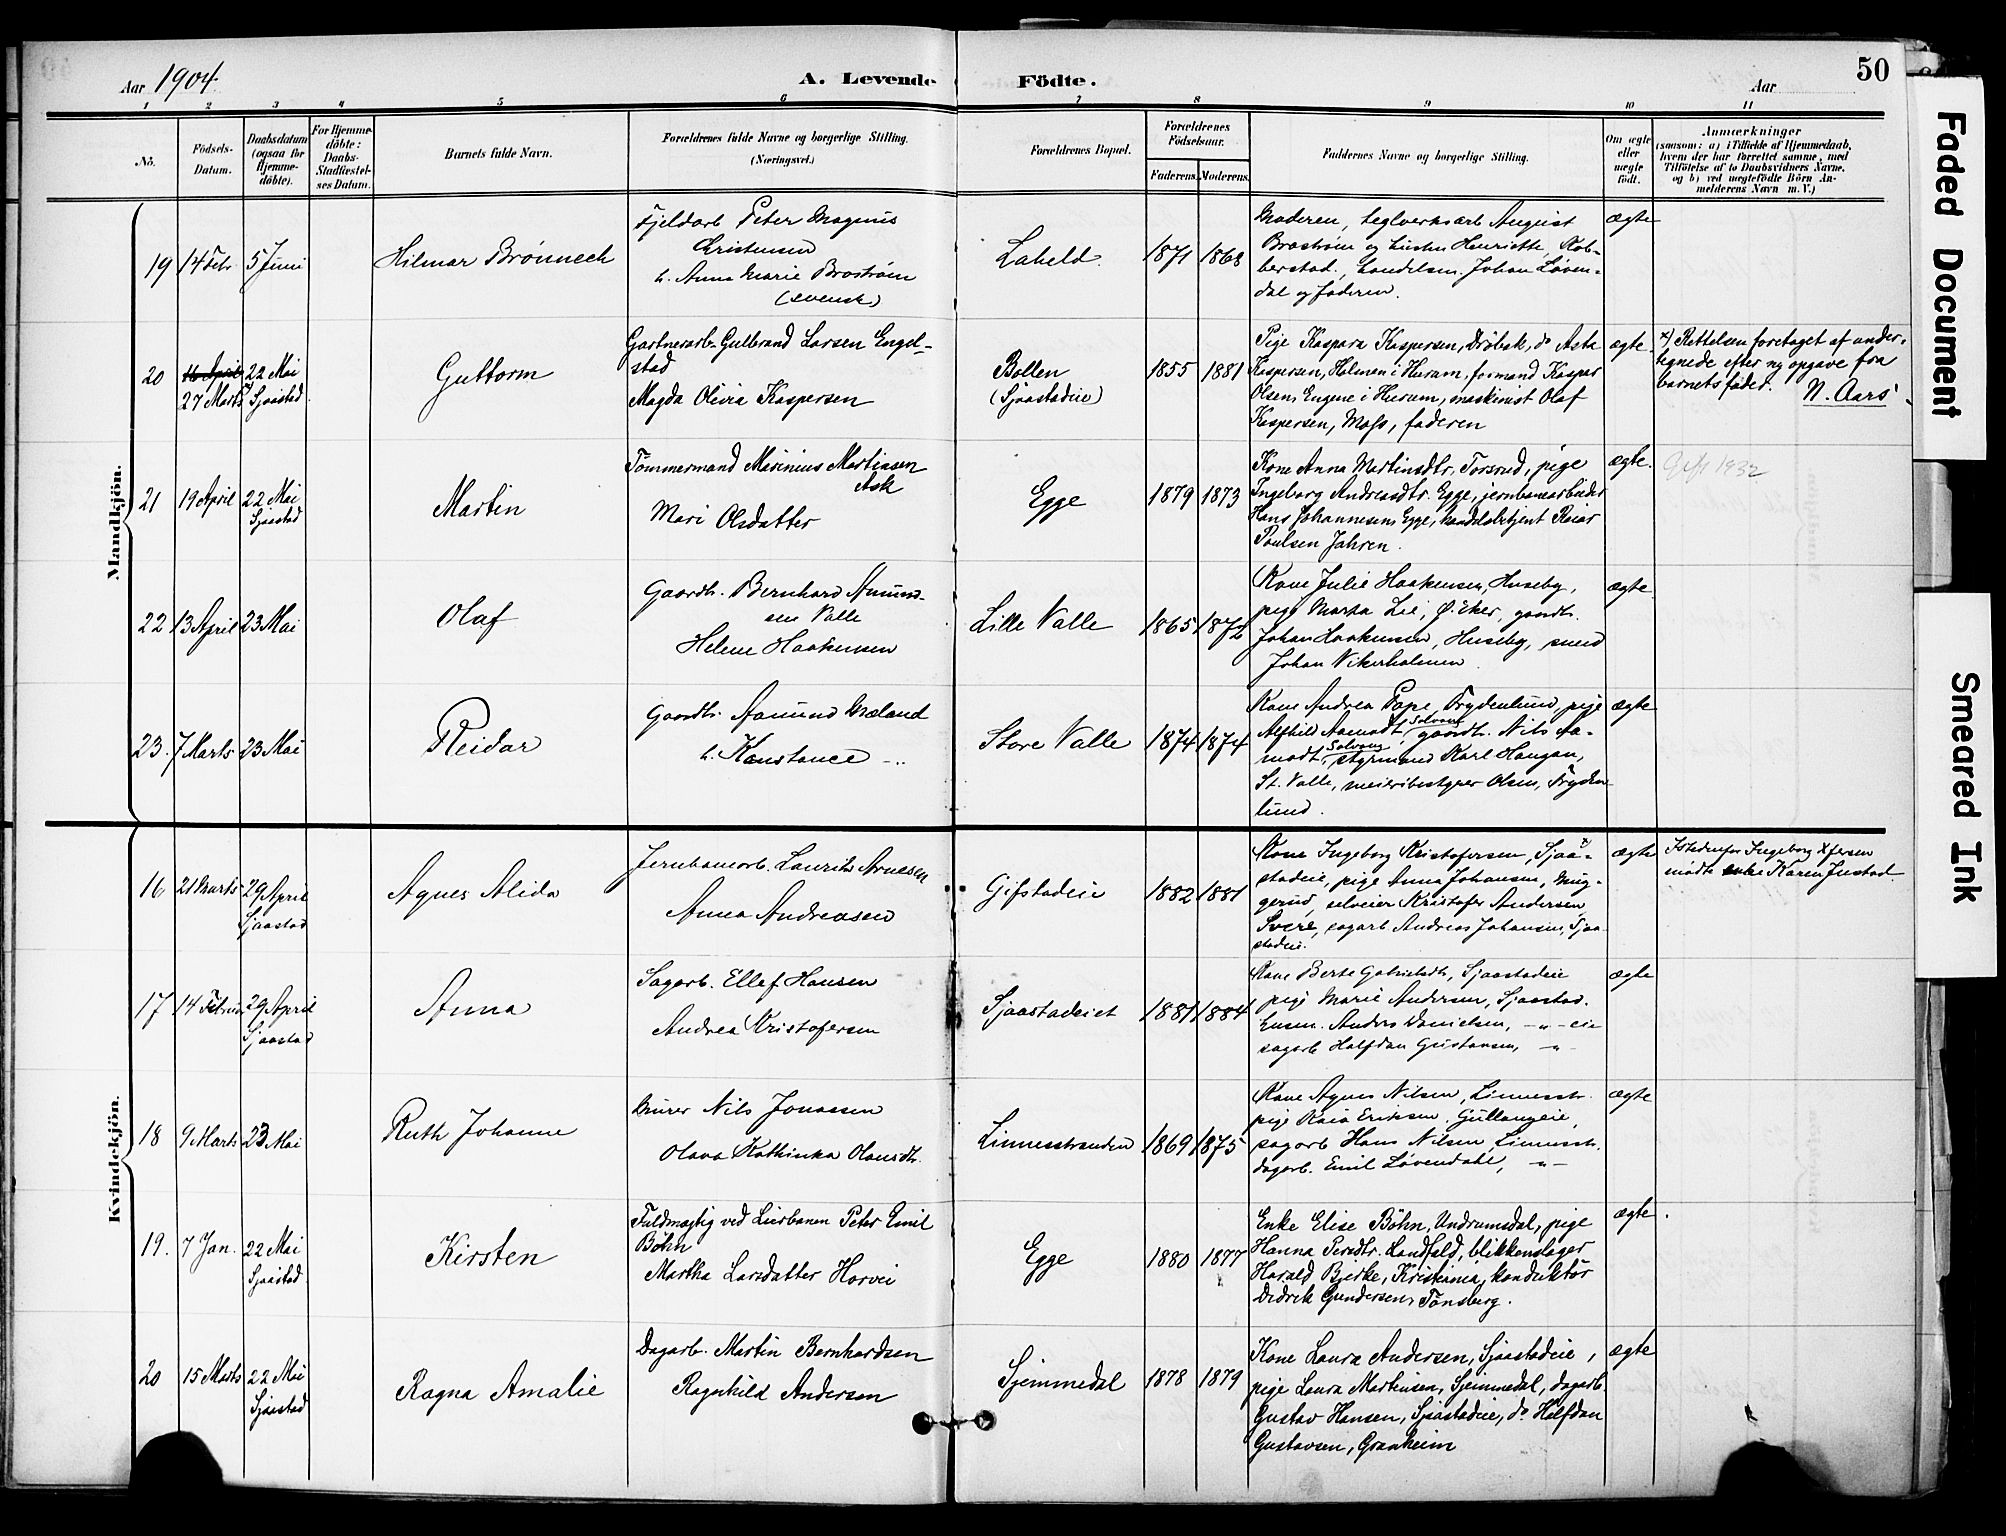 Aar 1904.
A. Levende Födte.
Aar
50
1 2 3 4 5 6 7 8 9 10 11
No.
Födsels-
Datum.
Daabsdatum
(ogsaa for
Hjemme-
döbte).
For Hjemme-
döbte:
Daabs-
Stadfæstel-
ses Datum.
Barnets fulde Navn.
Forældrenes fulde Navne og borgerlige Stilling.
(Næringsvei.)
Forældrenes Bopæl.
Forældrenes
Födselsaar.
Faderens.
Moderens.
Faddernes Navne og borgerlige Stilling.
Om ægte
eller
uægte
födt.
Anmærkninger
(saasom: a) i Tilfælde af Hjemmedaab,
hvem der har forrettet samme, med
Tilföielse af to Daabsvidners Navne,
og b) ved uægtefödte Börn An-
melderens Navn m. V.)
Mandkjön.
19
14 Febr.
5 Juni
Hilmar Brönnech
Fjeldarb Peter Magnus
Christensen
h. Anna Marie Broström
(svensk)
Laheld.
1871
1868
Moderen, teglverksarb August
Broström og hustru Henriette,
, handelsm. Johan Löven-
dal og faderen.
ægte
20
16 April
27 Marts
22 Mai
Sjaastad
Guttorm
Gartnerarb. Gulbrand Larsen Engel-
stad
Magda Olivia Kaspersen
Bollen
(Sjaastadeie)
1855
1881
Pige Kaspara Kaspersen, Dröbak, do Asta
Kaspersen, Holmen i Hurum, formand Kaspar
Olsen, Engene i Hurum, maskinist Olaf
Kaspersen, Moss, faderen
ægte
x) Rettelsen foretaget af under-
tegnede efter ny opgave fra
barnets fader. N. Aars
21
19 April
22 Mai
Sjaastad
Martin
Tömmermand Marinius Martinsen
Ask
Mari Olsdatter
Egge
1879
1873
Kone Anna Martinsdtr. Torsrud, pige
Ingeborg Andreasdtr. Egge, jernbanearbeider
Hans Johannesen, Egge, handelsbetjent Reiar
Paulsen Jahren.
ægte.
Gift 1932
22
13 April
23 Mai
Olaf
Gaardbr. Bernhard Amund-
sen Valle
Helene Haakensen
Lille Valle
1865
1872
Kone Julie Haakensen, Huseby,
pige Marta Lie, Ö. Eker, gaardbr.
Johan Haakensen, Huseby, smed
Johan Vikerholmen
ægte
23.
7 Marts
23 Mai
Reidar
Gaardbr. Aamund Mæland
h. Konstance -"-
Store Valle
1874
1874
Kone Andrea Pape, Frydenlund, pige
Alfhild Aamodt, Solvang, gaardbr. Nils Aa-
modt, Solvang, styrmand Karl Haugan,
St. Valle, meieribestyrer Olsen, Fryden-
lund.
ægte
Kvindekjön.
16
21 Marts
29 April
Sjaastad
Agnes Alida
Jernbanearb. Laurits Arnesen
Anna Andreasen
Gifstadeie
1882
1881
Kone Ingeborg Kristofersen, Sjaa-
stadeie, pige Anna Johansen, Mug-
gerud, selveier Kristofer Andersen
, sagarb Andreas Johansen, Sjaa-
stadeie.
ægte
Istedenfor Ingeborg Xfersen
mödte enke Karen Justad.
17
14 Februar
29 April
Sjaastad
Anna
Sagarb. Ellef Hansen
Andrea Kristofersen
Sjaastadeiet
1881
1884
Kone Berte Gabrielsdtr, Sjaastadeie
pige Marie Andersen, Sjaastad.
Anders Danielsen, -"- eie
sagarb Halfdan Gustavsen, -"-
ægte
18
9 Marts
23 Mai
Ruth Johanne
Murer Nils Jonassen
Olava Kathinka Olausdtr.
Linnesstranden
1869
1875
Kone Agnes Nilsen, Linnesstr.
pige Kaia Eriksen, Gullaugeie,
sagarb Hans Nilsen, Linnesstr.
dagarb. Emil Lövendahl, -"-
ægte
19.
7 Jan.
22 Mai
Sjaastad
Kirsten
Fuldmægtig ved Lierbanen Peter Emil
Böhn
Martha Larsdatter Horvei
Egge
1880
1877
Enke Elise Böhn, Undrumsdal, pige
Hanna Persdtr. Landfald, blikkenslager
Harald Bjerke, Kristiania, konduktör
Didrik Gundersen, Tönsberg.
ægte
20
15 Marts
22 Mai
Sjaastad
Ragna Amalie
Dagarb. Martin Bernhardsen
Ragnhild Andersen
Sjemmedal
1878
1879
Kone Laura Andersen, Sjaastadeie,
pige Laura Martinsen, Sjemmedal, dagarb.
Gustav Hansen, Sjaastadeie, do Halfdan
Gustavsen, Granheim
ægte
Faded Document
Smeared Ink